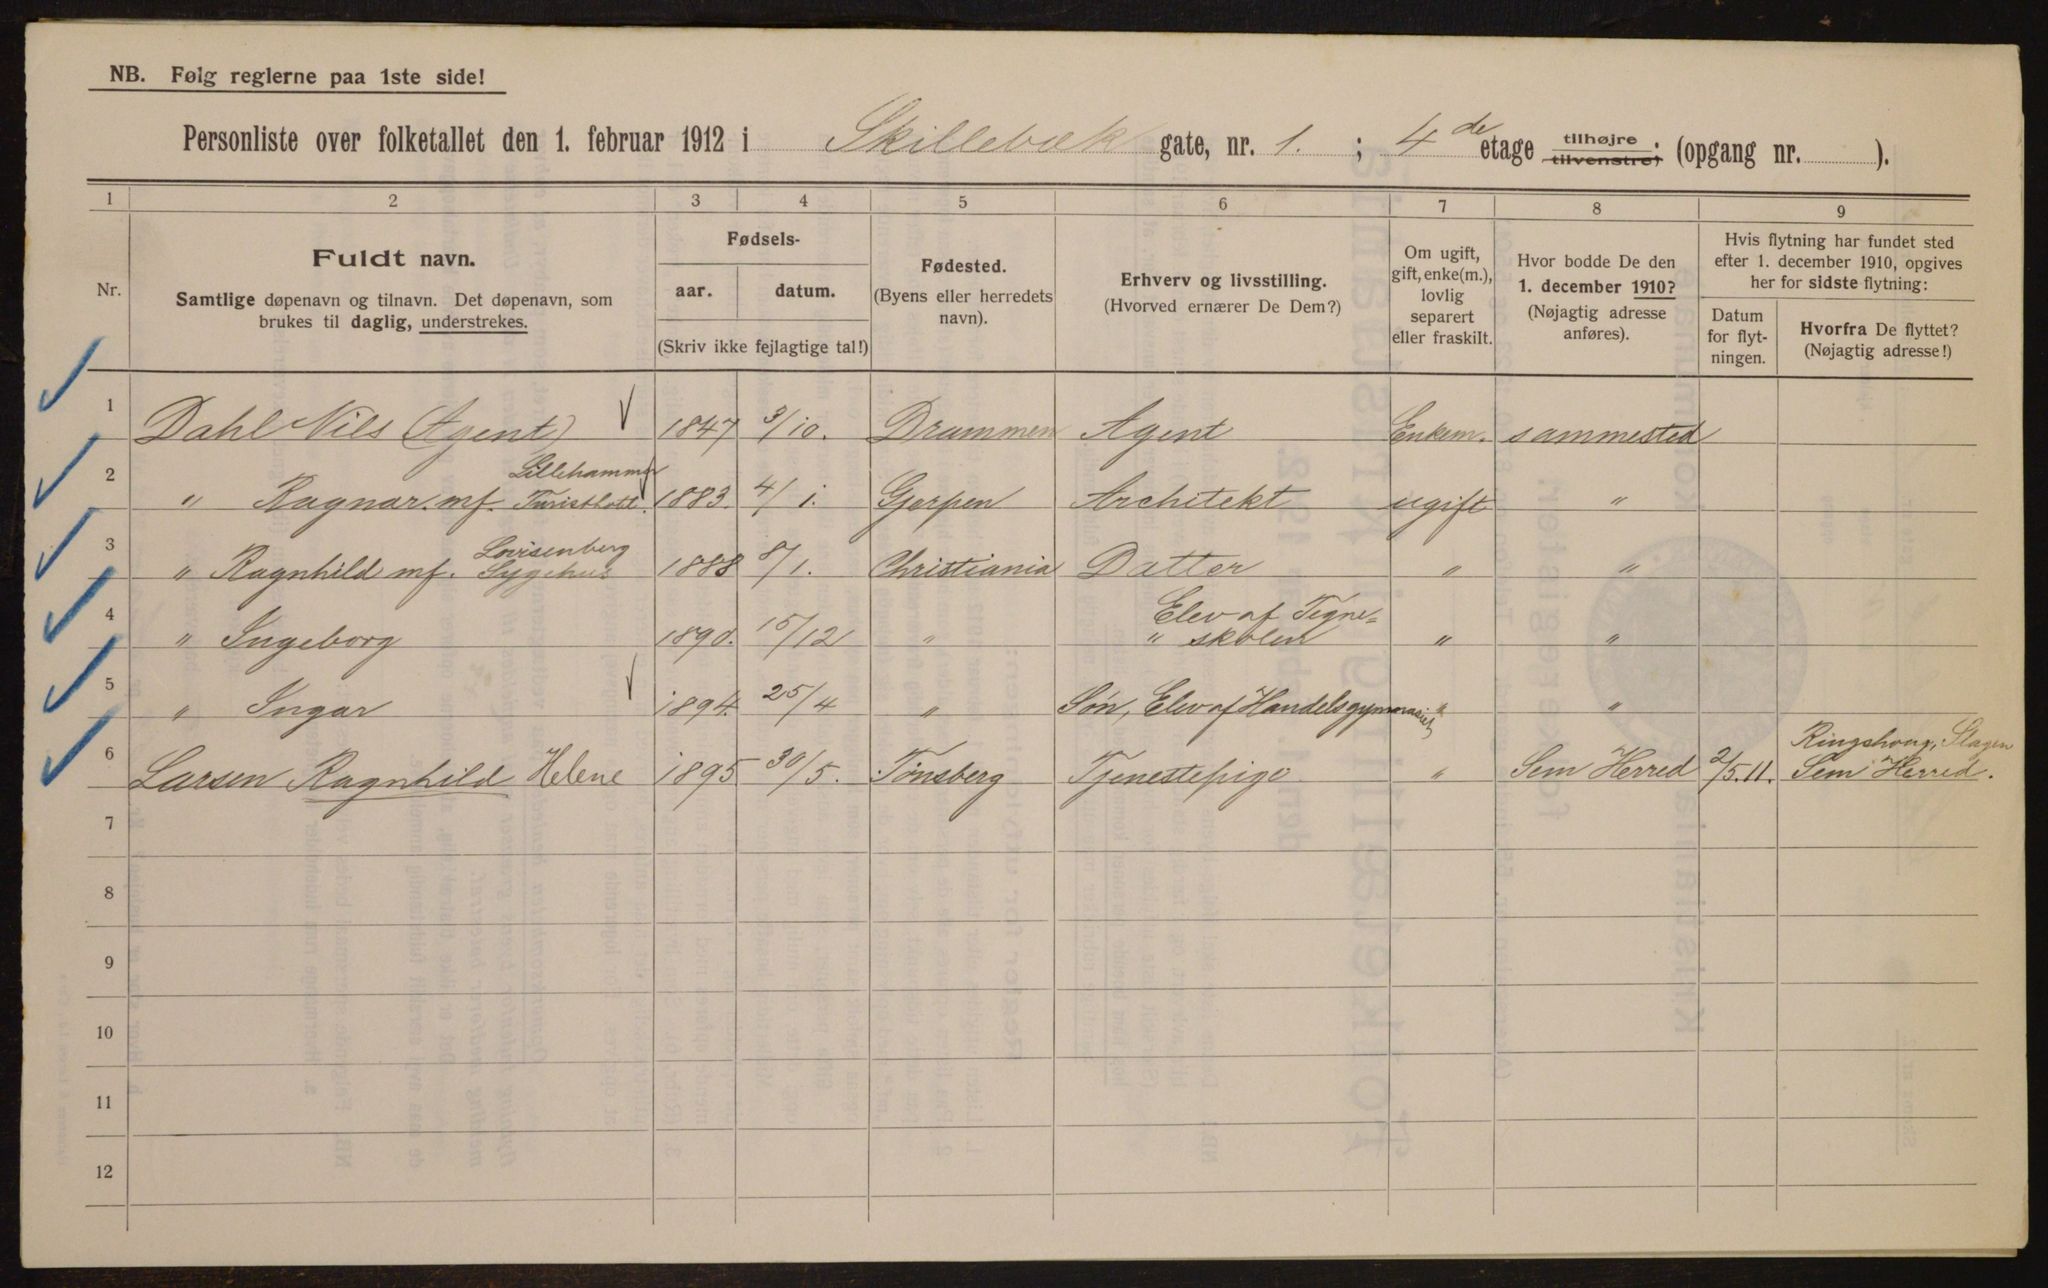 NB. Følg reglerne paa 1ste side!
Personliste over folketallet den 1. februar 1912 i Skillebæk gate, nr. 1. ; 4de etage tilhøjre tilvenstre; (opgang nr. ).
1 2 3 4 5 6 7 8 9
Nr.
Fuldt navn.
Samtlige døpenavn og tilnavn. Det døpenavn, som
brukes til daglig, understrekes.
Fødsels-
aar. datum.
(Skriv ikke fejlagtige tal!)
Fødested.
(Byens eller herredets
navn).
Erhverv og livsstilling.
(Hvorved ernærer De Dem?)
Om ugift,
gift, enke(m.),
lovlig
separert
eller fraskilt.
Hvor bodde De den
1. december 1910?
(Nøjagtig adresse
anføres).
Hvis flytning har fundet sted
efter 1. december 1910, opgives
her for sidste flytning:
Datum
for flyt-
ningen.
Hvorfra De flyttet?
(Nøjagtig adresse!)
1 Dahl Nils (Agent) 1847 3/10. Drammen Agent Enkem. sammested
Lillehammer
2 " Ragnar. mf. Turisthotel. 1883. 4/1. Gjerpen Architekt ugift "
Lovisenberg
3 " Ragnhild mf. Sygehus 1888 8/1. Christiania Datter " "
Elev af Tegne=
4 " Ingeborg 1890. 15/12 " " skolen " "
5 " Ingar 1894. 25/4 " Søn, Elev af Handelsgymnasiet " "
Ringshoug, Slagen
6 Larsen Ragnhild Helene 1895 30/5. Tønsberg Tjenestepige " Sem Herred 2/5.11. Sem Herred.
7
8
9
10
11
12